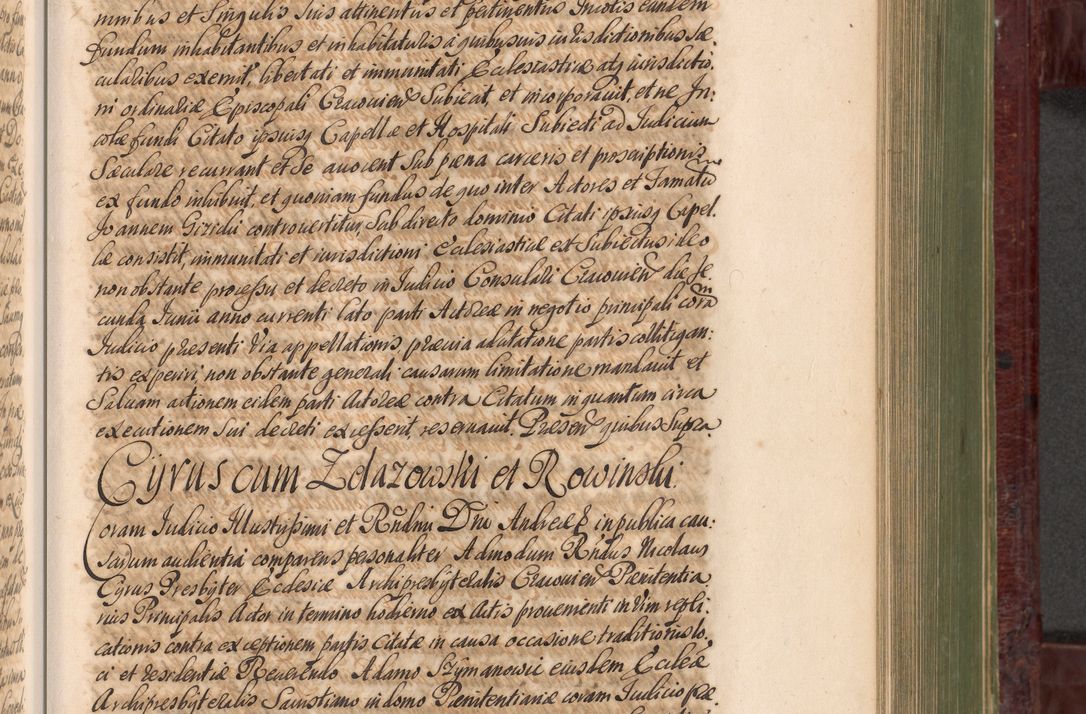 nnibus et Singulis suis attinentiis et pertinentiis Incolis eundem
fundum inhabitantibus et inhabitaturis à quibusuis iurisdictionibus Sæ
cularibus exemit, libertati et immunitati Ecclesiasticæ atq iurisdictio,
ni ordinariæ Episcopali Cracouien Subiecit, et incorporauit, et ne In:
colæ fundi Citato ipsiusq Capellæ et Hospitali Subiecti ad Iudicium
Sæculare recurrant et Se auocent Sub pæna carceris et proscriptionis
ex fundo inhibuit, et quoniam fundus de quo inter Actores et Famatū
Joannem Giridii controuertitur, Sub directo dominio Citati ipsiusq Capel.
læ consistit, immunitati et iurisdictioni Ecclesiasticæ est Subiectus ideo
non obstante processu et decreto in Iudicio Consulari Cracouien die Se
cunda Junii anno currenti lato parti Actoreæ in negotio principali corā
Iudicio præsenti via appellationis præuia adcitatione partis collitigan:
tis experiri, non obstante generali causarum limitatione mandauit et
Saluam actionem eidem parti Actoreæ contra Citatum in quantum circa
executionem Sui decreti excesserit, reseruauit. Præsen quibus Supra.
Cyrus cum Zdazowski et Rowinski.
Coram Iudicio Illustrissimi et Rñdmi Dni Andreæ in publica cau:
sarum audientia comparens personaliter Admodum Rñdus Nicolaus
Cyrus Presbyter Ecclesiæ Archipresbyteralis Cracouien Pænitentia
rius Principalis Actor in termino hodierno ex Actis proueni­enti in vim repli:
cationis contra exceptionem partis Citatæ in causa occasione traditionis lo,
ci et residentiæ Reuerendo Adamo Szymanowic eiusdem Eccleæ
Archipresbyteralis Sacristiano in domo Pænitentiariæ coram Iudicio præ